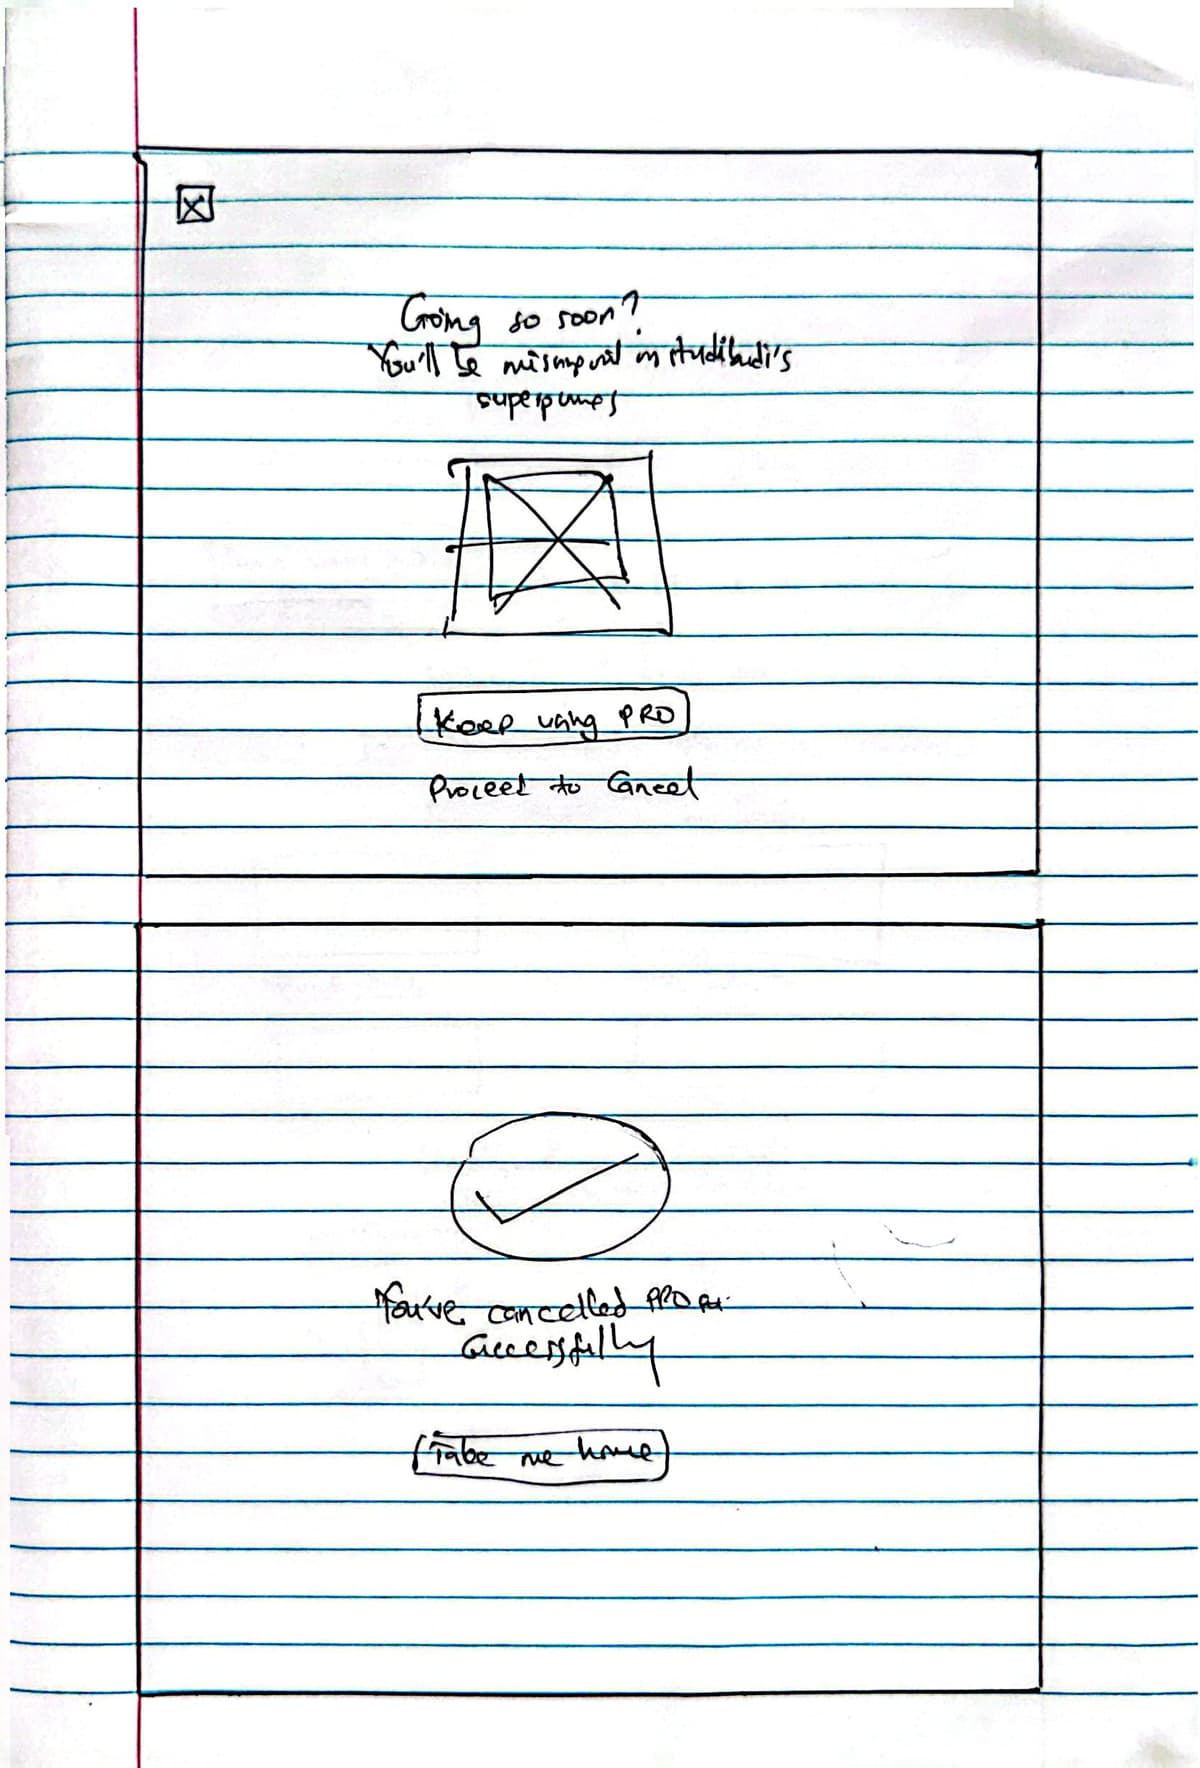 Going so soon?
You'll be missing out on studibudi's
superpowers
Keep using PRO
Proceed to Cancel
You've cancelled PRO
successfully
Take me home